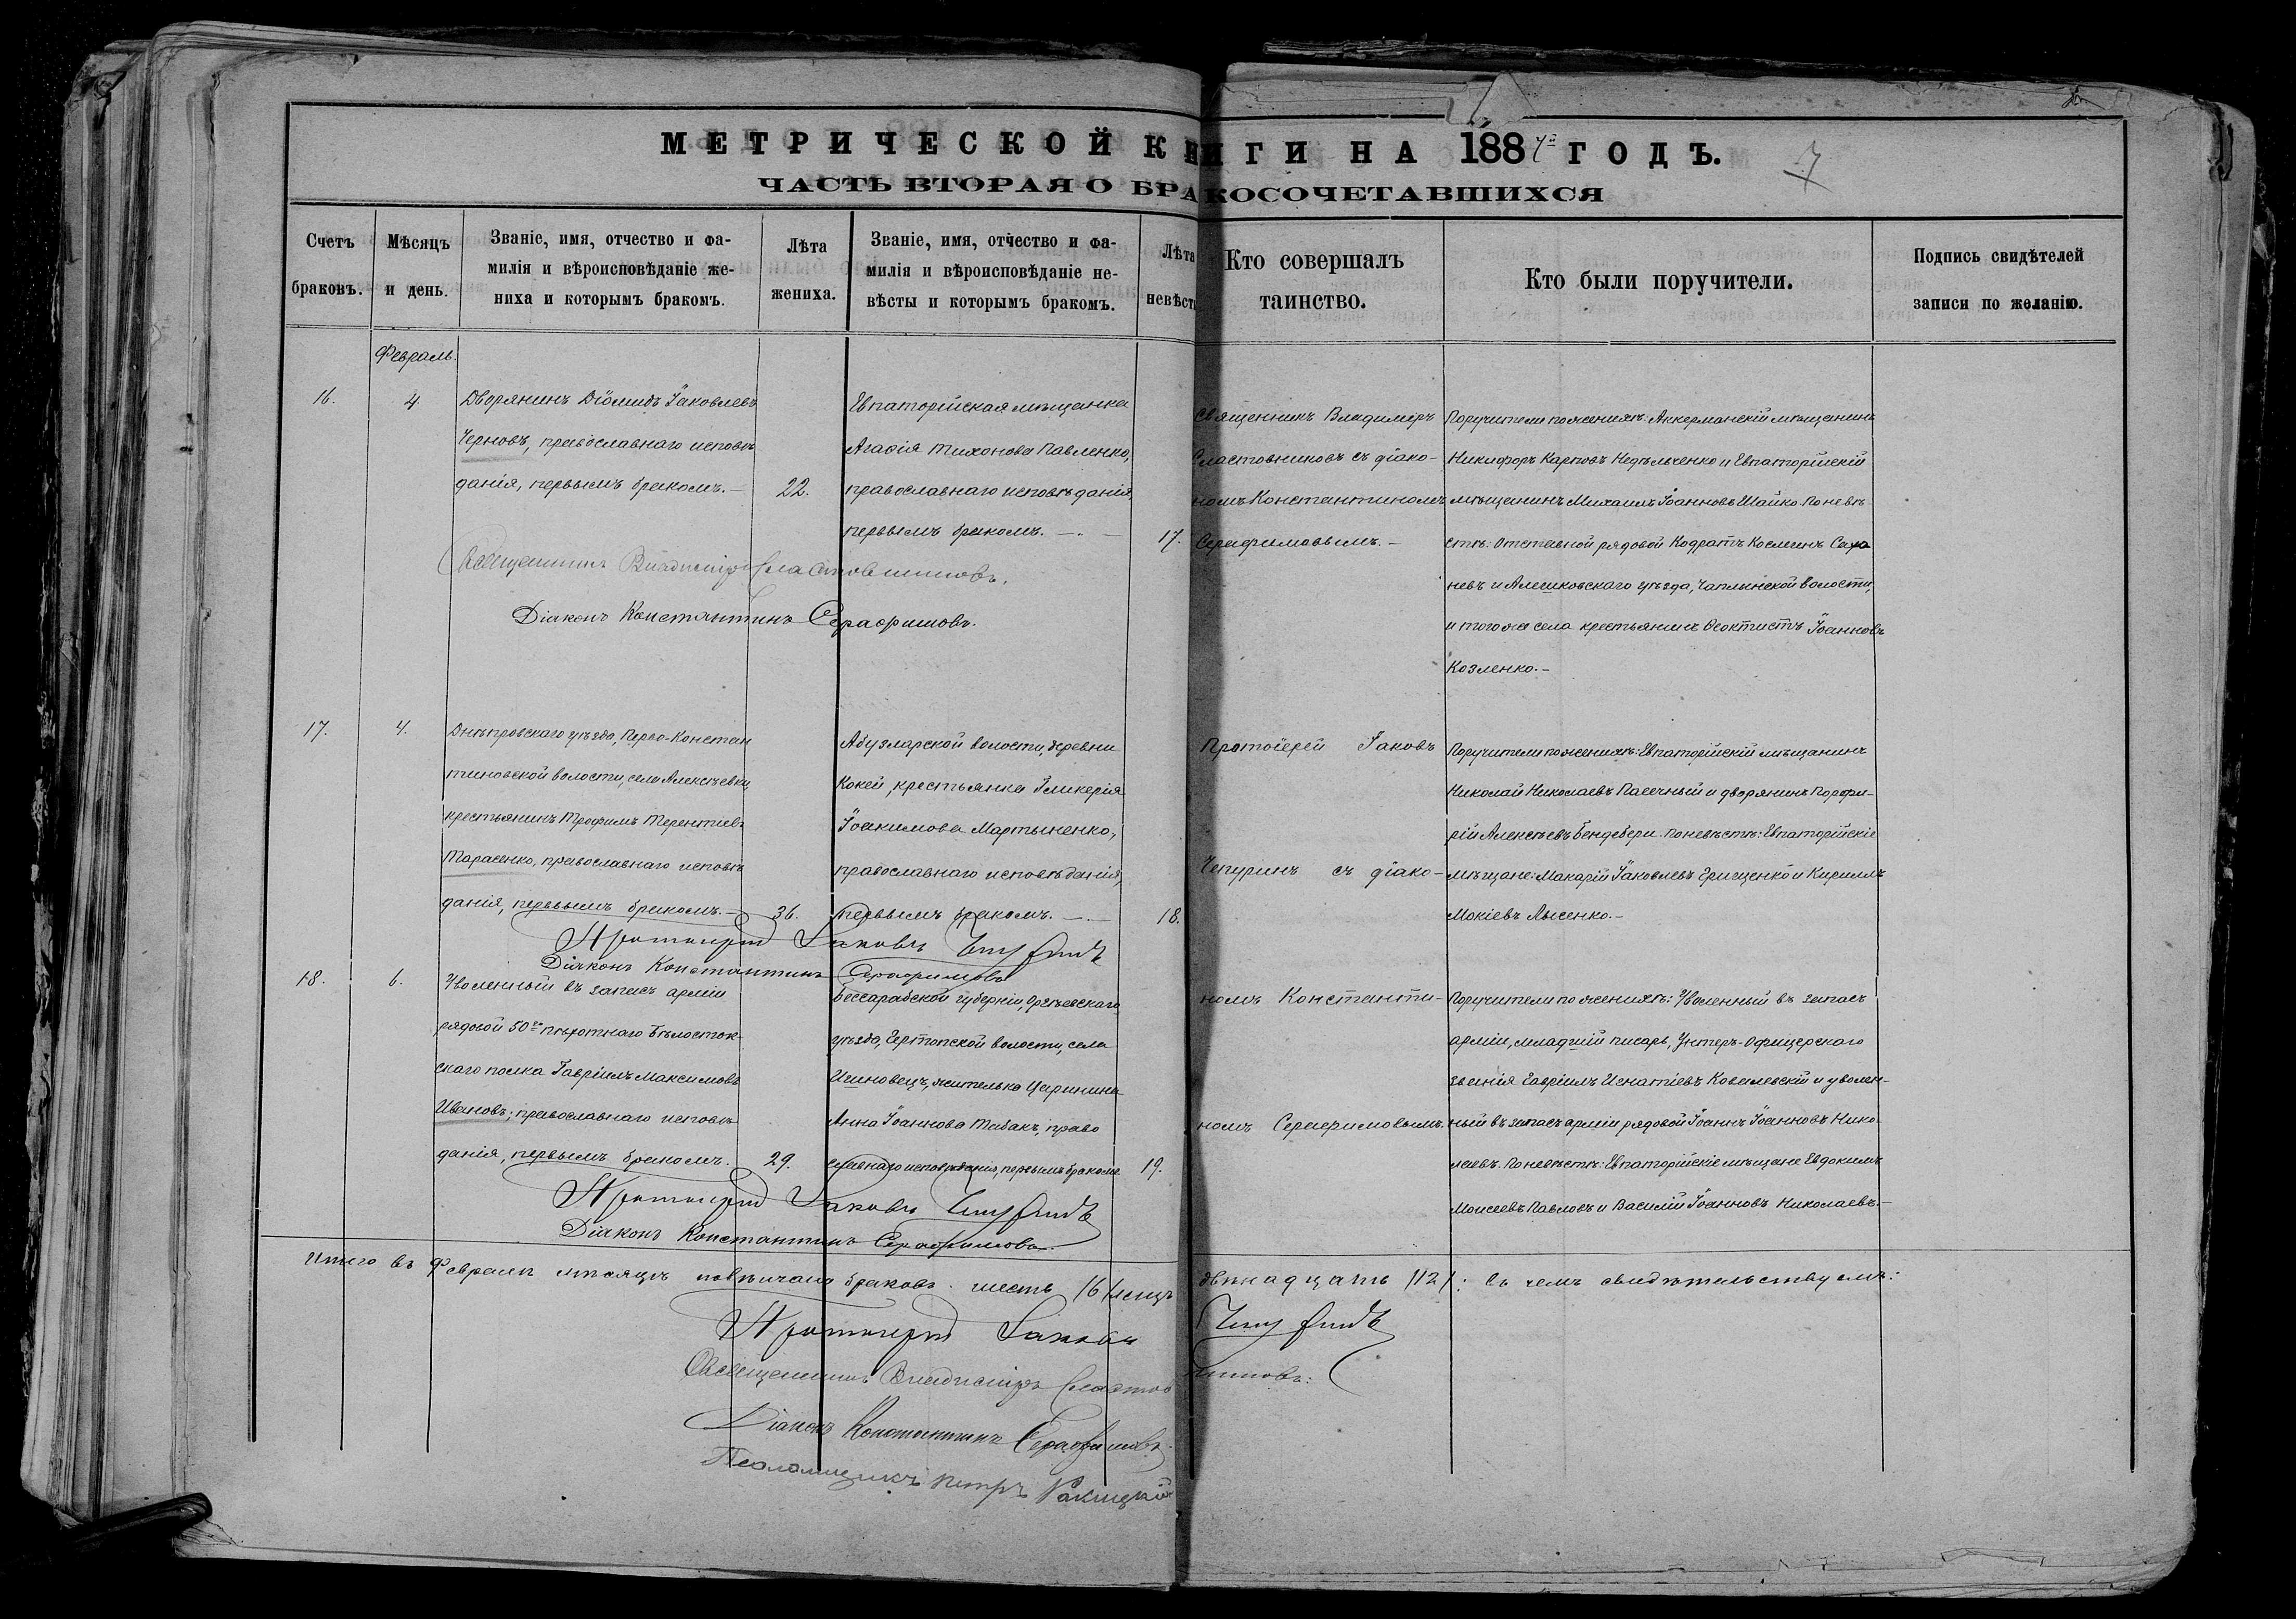 МЕТРИЧЕСКОЙ КНИГИ НА 1884й ГОДЪ.
7
ЧАСТЬ ВТОРАЯ О БРАКОСОЧЕТАВШИХСЯ
Счетъ
браковъ.
Мѣсяцъ
и день.
Званіе, имя, отчество и фа-
милія и вѣроисповѣданіе же-
ниха и которымъ бракомъ.
Лѣта
жениха.
Званіе, имя, отчество и фа-
милія и вѣроисповѣданіе не-
вѣсты и которымъ бракомъ.
Лѣта
невѣсты
Кто совершалъ
таинство.
Кто были поручители.
Подпись свидѣтелей
записи по желанію.
Февраль.
16.
4
Дворянинъ Діомидъ Іаковлевъ
Черновъ, православнаго исповѣ
данія, первымъ бракомъ.—
22.
Евпаторійская мѣщанка
Агафія Тихонова Павленко,
православнаго исповѣданія,
первымъ бракомъ.—
17.
Священникъ Владимиръ
Сластовниковъ съ діако-
номъ Константиномъ
Серафимовымъ.—
Поручители по женихѣ: Аккерманскій мѣщанинъ
Никифоръ Карповъ Недѣльченко и Евпаторійскій
мѣщанинъ Михаилъ Іоанновъ Шайко. По невѣ-
стѣ: Отставной рядовой Кодратъ Косминъ Саха
невъ и Алешковскаго уѣзда, Чаплинской волости,
и того же села крестьянинъ Ѳеоктистъ Іоанновъ
Козленко.—
Священникъ Владиміръ Сластовниковъ.
Діаконъ Константинъ Серафимовъ.
17.
4.
Днѣпровскаго уѣзда, Перво-Констан
тиновской волости, села Алексѣевки,
крестьянинъ Трофимъ Терентіевъ
Тарасенко, православнаго исповѣ
данія, первымъ бракомъ.—
36.
Абузларской волости, деревни
Кокей, крестьянка Гликерія
Іоакимова Мартыненко,
православнаго исповѣданія,
первымъ бракомъ.—
18.
Протоіерей Іаковъ
Чепуринъ съ діако-
Поручители по женихѣ: Евпаторійскій мѣщанинъ
Николай Николаевъ Пасечный и дворянинъ Порфи-
рій Алексѣевъ Бендебери. По невѣстѣ: Евпаторійскіе
мѣщане: Макарій Іаковлевъ Грищенко и Кириллъ
Мокіевъ Лысенко.—
Протоіерей Іаковъ Чепуринъ
Діаконъ Константинъ Серафимовъ
18.
6.
Уволенный въ запасъ арміи
рядовой 50го пѣхотнаго Бѣлосток-
скаго полка Гавріилъ Максимовъ
Ивановъ, православнаго исповѣ
данія, первымъ бракомъ.
29.
Бессарабской губерніи, Оргѣевскаго
уѣзда, волости, села
жителька Царанина
Анна Іоаннова Табакъ, право
славнаго исповѣданія, первымъ бракомъ
19.
номъ Константи-
номъ Серафимовымъ.
Поручители по женихѣ: Уволенный въ запасъ
арміи, младшій писарь, Унтеръ-Офицерскаго
званія Гавріилъ Игнатіевъ Ковалевскій и уволен-
ный въ запасъ арміи рядовой Іоаннъ Іоанновъ Нико
лаевъ. По невѣстѣ: Евпаторійскіе мѣщане Евдокимъ
Моисеевъ Павловъ и Василій Іоанновъ Николаевъ.—
Протоіерей Іаковъ Чепуринъ
Діаконъ Константинъ Серафимовъ.
Итого въ Февралѣ мѣсяцѣ повѣнчано браковъ шесть (6) лицъ двѣнадцать (12): въ чемъ свидѣтельствуемъ:
Протоіерей Іаковъ Чепуринъ
Священникъ Владиміръ Сластовниковъ:
Діаконъ Константинъ Серафимовъ.
Псаломщикъ Петръ